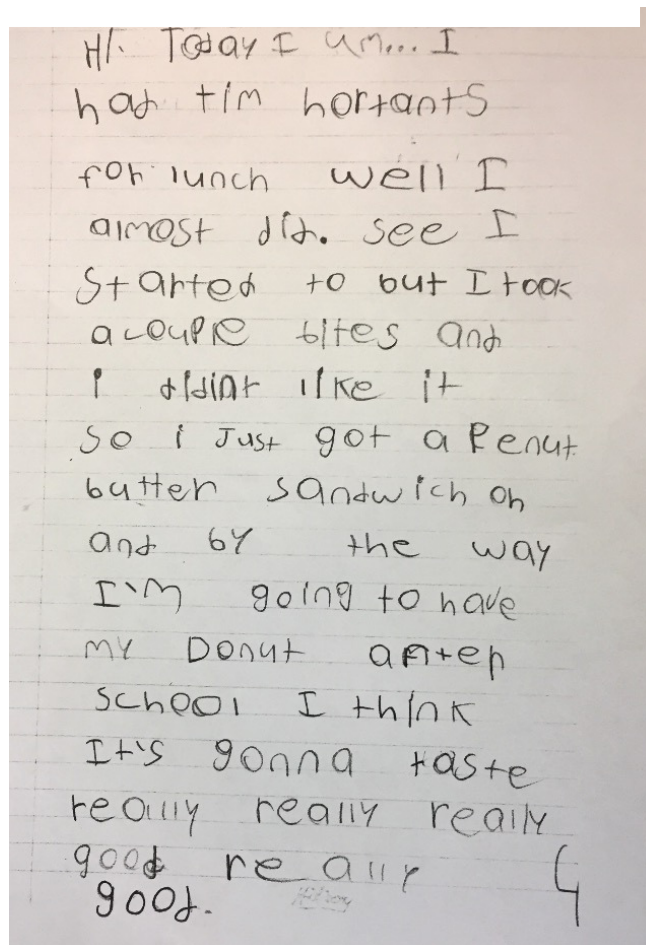 Hi. Today I um... I
had tim hortants
for lunch well I
almost did. see I
started to but I took
a couple bites and
i didint like it
so i Just got a Penut
butter sandwich oh
and by the way
I'm going to have
my Donut after
school I think
It's gonna taste
really really really
good really
good.